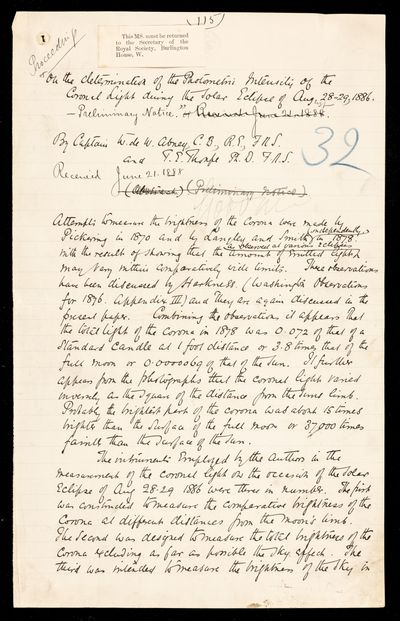 (115)
1
This MS. must be returned
to the Secretary of the
Royal Society, Burlington
House, W.
Proceedings
"On the determination of the Photometric Intensity of the
Coronal Light during the Solar Eclipse of Aug. 28-29, 1886.
— Preliminary Notice." Received June 21. 1888.
By Captain W. de W. Abney, C.B., R.E., F.R.S.
and T. E. Thorpe Ph.D. F.R.S.
32
Received June 21. 1888
(Abstract) (Preliminary Notice)
Attempts to measure the brightness of the Corona were made by
Pickering in 1870 and by Langley and Smith independently in 1878
with the result of showing that the amount of emitted light as observed at various eclipses
may vary within comparatively wide limits. These observations
have been discussed by Harkness. (Washington Observations
for 1876. Appendix III) and they are again discussed in the
present paper. Combining the observations it appears that
the total light of the corona in 1878 was 0.072 of that of a
Standard Candle at 1 foot distance or 3.8 times that of the
full moon or 0.0000069 of that of the Sun. It further
appears from the photographs that the coronal light varied
inversely as the square of the distance from the Sun's limb.
Probably the brightest part of the corona was about 15 times
brighter than the surface of the full moon or 37,000 times
fainter than the surface of the Sun.
The instruments employed by the Authors in the
measurement of the Coronal light on the occasion of the Solar
Eclipse of Aug 28-29 1886 were three in number. The first
was constructed to measure the comparative brightness of the
Corona at different distances from the Moon's limb.
The Second was designed to measure the total brightness of the
Corona excluding as far as possible the sky effect. The
third was intended to measure the brightness of the sky in